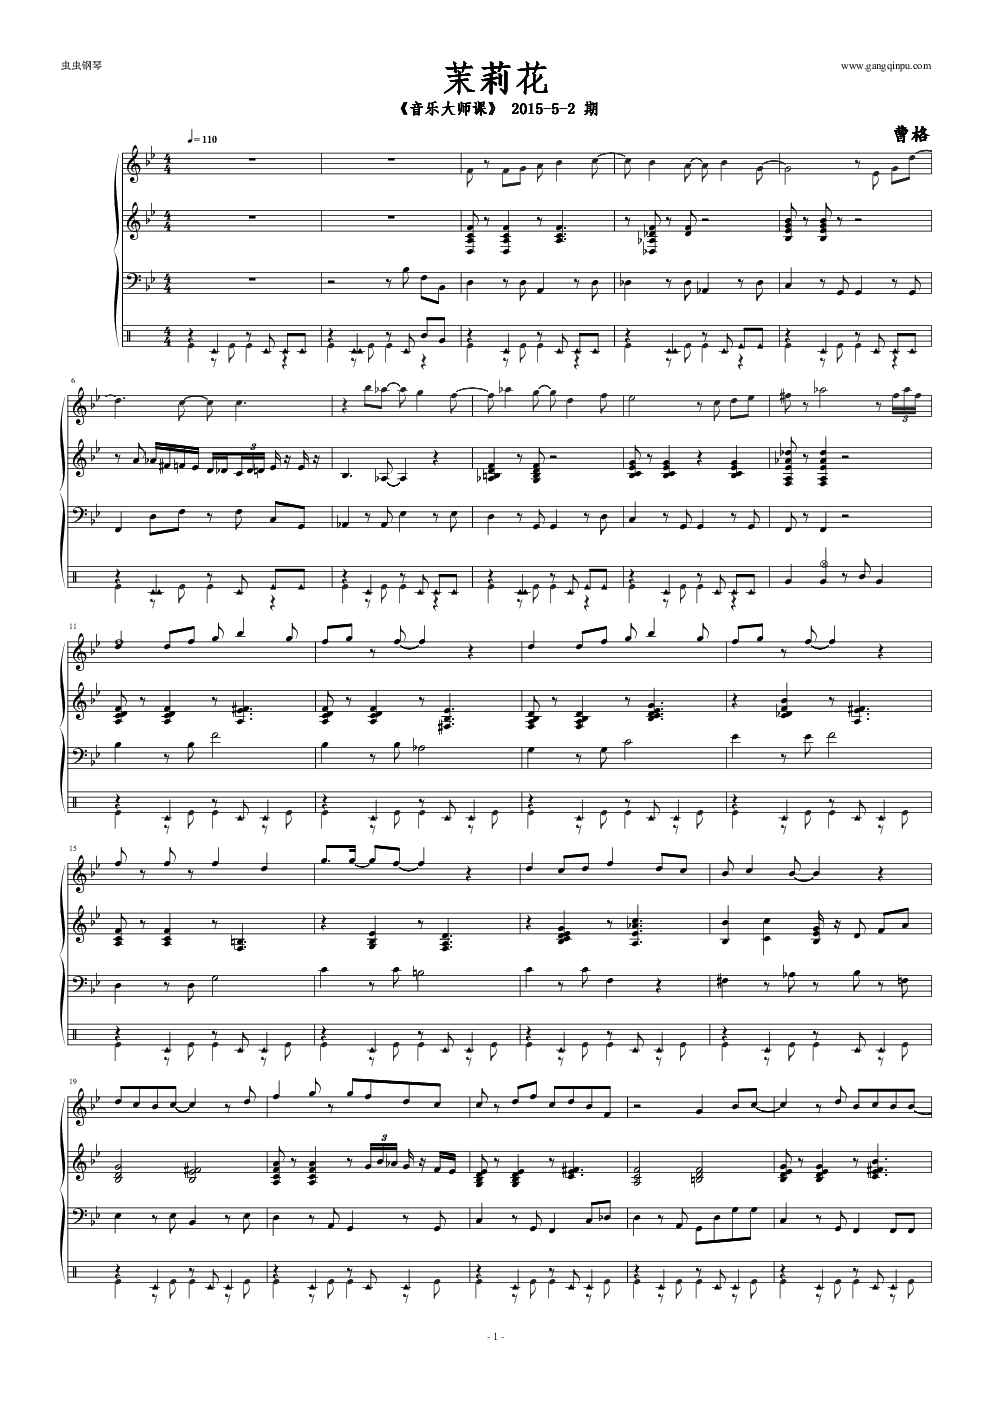 虫虫钢琴 www.gangqinpu.com
茉莉花
《音乐大师课》 2015-5-2 期
曹格
♩= 110
6
3
3
11
15
19
3
- 1 -